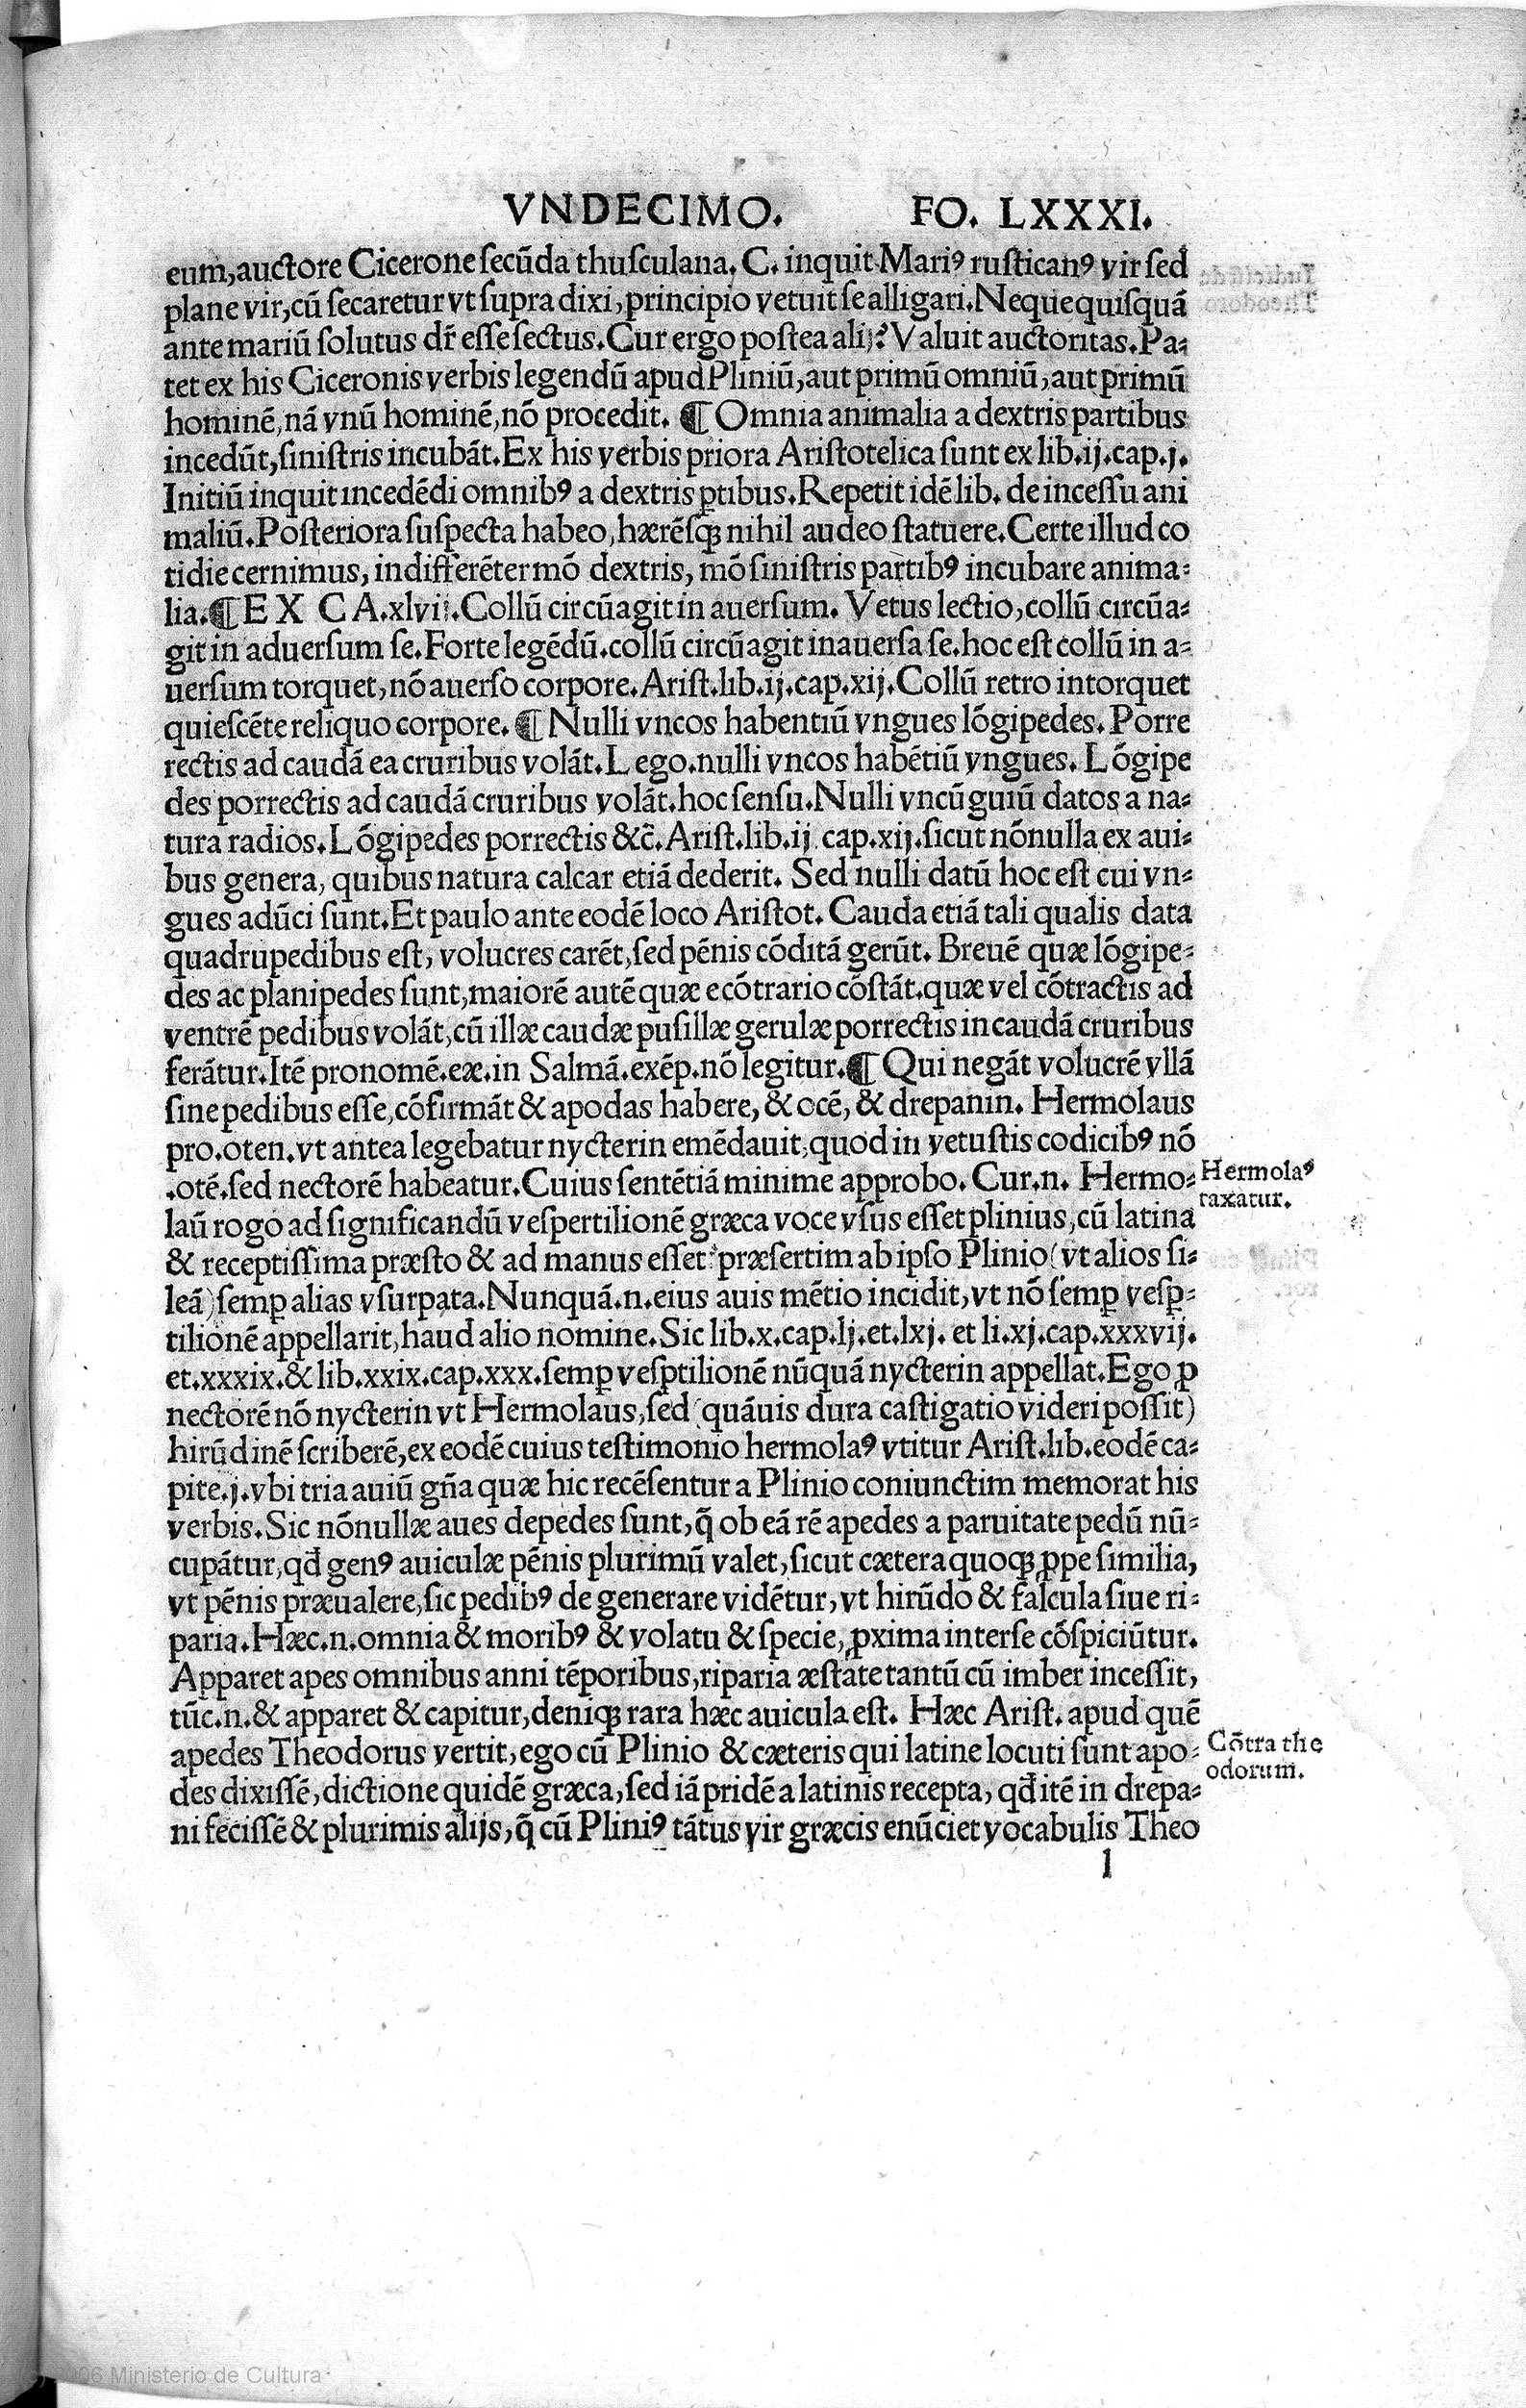 VNDECIMO. FO. LXXXI.
eum, auctore Cicerone secūda thusculana. C. inquit Mariꝰ rusticanꝰ vir sed
plane vir, cū secaretur vt supra dixi, principio vetuit se alligari. Neque quisquā
ante mariū solutus dr̄ esse sectus. Cur ergo postea alij? Valuit auctoritas. Pa-
tet ex his Ciceronis verbis legendū apud Pliniū, aut primū omniū, aut primū
hominē, nā vnū hominē, nō procedit. ¶ Omnia animalia a dextris partibus
incedūt, sinistris incubāt. Ex his verbis priora Aristotelica sunt ex lib. ij. cap. j.
Initiū inquit incedēdi omnibꝰ a dextris ꝑtibus. Repetit idē lib. de incessu ani
maliū. Posteriora suspecta habeo, hærēsqꝫ nihil audeo statuere. Certe illud co
tidie cernimus, indifferēter mō dextris, mō sinistris partibꝰ incubare anima-
lia. ¶ EX CA. xlvij. Collū circūagit in auersum. Vetus lectio, collū circūa-
git in aduersum se. Forte legēdū. collū circūagit in auersa se. hoc est collū in a-
uersum torquet, nō auerso corpore. Arist. lib. ij. cap. xij. Collū retro intorquet
quiescēte reliquo corpore. ¶ Nulli vncos habentiū vngues lōgipedes. Porre
rectis ad caudā ea cruribus volāt. Lego. nulli vncos habētiū vngues. Lōgipe
des porrectis ad caudā cruribus volāt. hoc sensu. Nulli vncū guiū datos a na-
tura radios. Lōgipedes porrectis &c̄. Arist. lib. ij cap. xij. sicut nōnulla ex aui-
bus genera, quibus natura calcar etiā dederit. Sed nulli datū hoc est cui vn-
gues adūci sunt. Et paulo ante eodē loco Aristot. Cauda etiā tali qualis data
quadrupedibus est, volucres carēt, sed pēnis cōditā gerūt. Breuē quæ lōgipe-
des ac planipedes sunt, maiorē autē quæ e cōtrario cōstāt. quæ vel cōtractis ad
ventrē pedibus volāt, cū illæ caudæ pusillæ gerulæ porrectis in caudā cruribus
ferātur. Itē pronomē. eæ. in Salmā. exēp. nō legitur. ¶ Qui negāt volucrē vllā
sine pedibus esse, cōfirmāt & apodas habere, & ocē, & drepanin. Hermolaus
pro. oten. vt antea legebatur nycterin emēdauit, quod in vetustis codicibꝰ nō
. otē. sed nectorē habeatur. Cuius sentētiā minime approbo. Cur. n. Hermo-
Hermolaꝰ
taxatur.
laū rogo ad significandū vespertilionē græca voce vsus esset plinius, cū latina
& receptissima præsto & ad manus esset? præsertim ab ipso Plinio (vt alios si-
leā) semꝑ alias vsurpata. Nunquā. n. eius auis mētio incidit, vt nō semꝑ vesꝑ-
tilionē appellarit, haud alio nomine. Sic lib. x. cap. lj. et. lxj. et li. xj. cap. xxxvij.
et. xxxix. & lib. xxix. cap. xxx. semꝑ vesꝑtilionē nūquā nycterin appellat. Ego ꝓ
nectorē nō nycterin vt Hermolaus, sed (quāuis dura castigatio videri possit)
hirūdinē scriberē, ex eodē cuius testimonio hermolaꝰ vtitur Arist. lib. eodē ca-
pite. j. vbi tria auiū gn̄a quæ hic recēsentur a Plinio coniunctim memorat his
verbis. Sic nōnullæ aues depedes sunt, q̄ ob eā rē apedes a paruitate pedū nū-
cupātur, qd̄ genꝰ auiculæ pēnis plurimū valet, sicut cætera quoqꝫ ꝓpe similia,
vt pēnis præualere, sic pedibꝰ de generare vidētur, vt hirūdo & falcula siue ri-
paria. Hæc. n. omnia & moribꝰ & volatu & specie, ꝓxima inter se cōspiciūtur.
Apparet apes omnibus anni tēporibus, riparia æstate tantū cū imber incessit,
tūc. n. & apparet & capitur, deniqꝫ rara hæc auicula est. Hæc Arist. apud quē
apedes Theodorus vertit, ego cū Plinio & cæteris qui latine locuti sunt apo-
Cōtra the
odorum.
des dixissē, dictione quidē græca, sed iā pridē a latinis recepta, qd̄ itē in drepa-
ni fecissē & plurimis alijs, q̄ cū Pliniꝰ tātus vir græcis enūciet vocabulis Theo
l
2006 Ministerio de Cultura